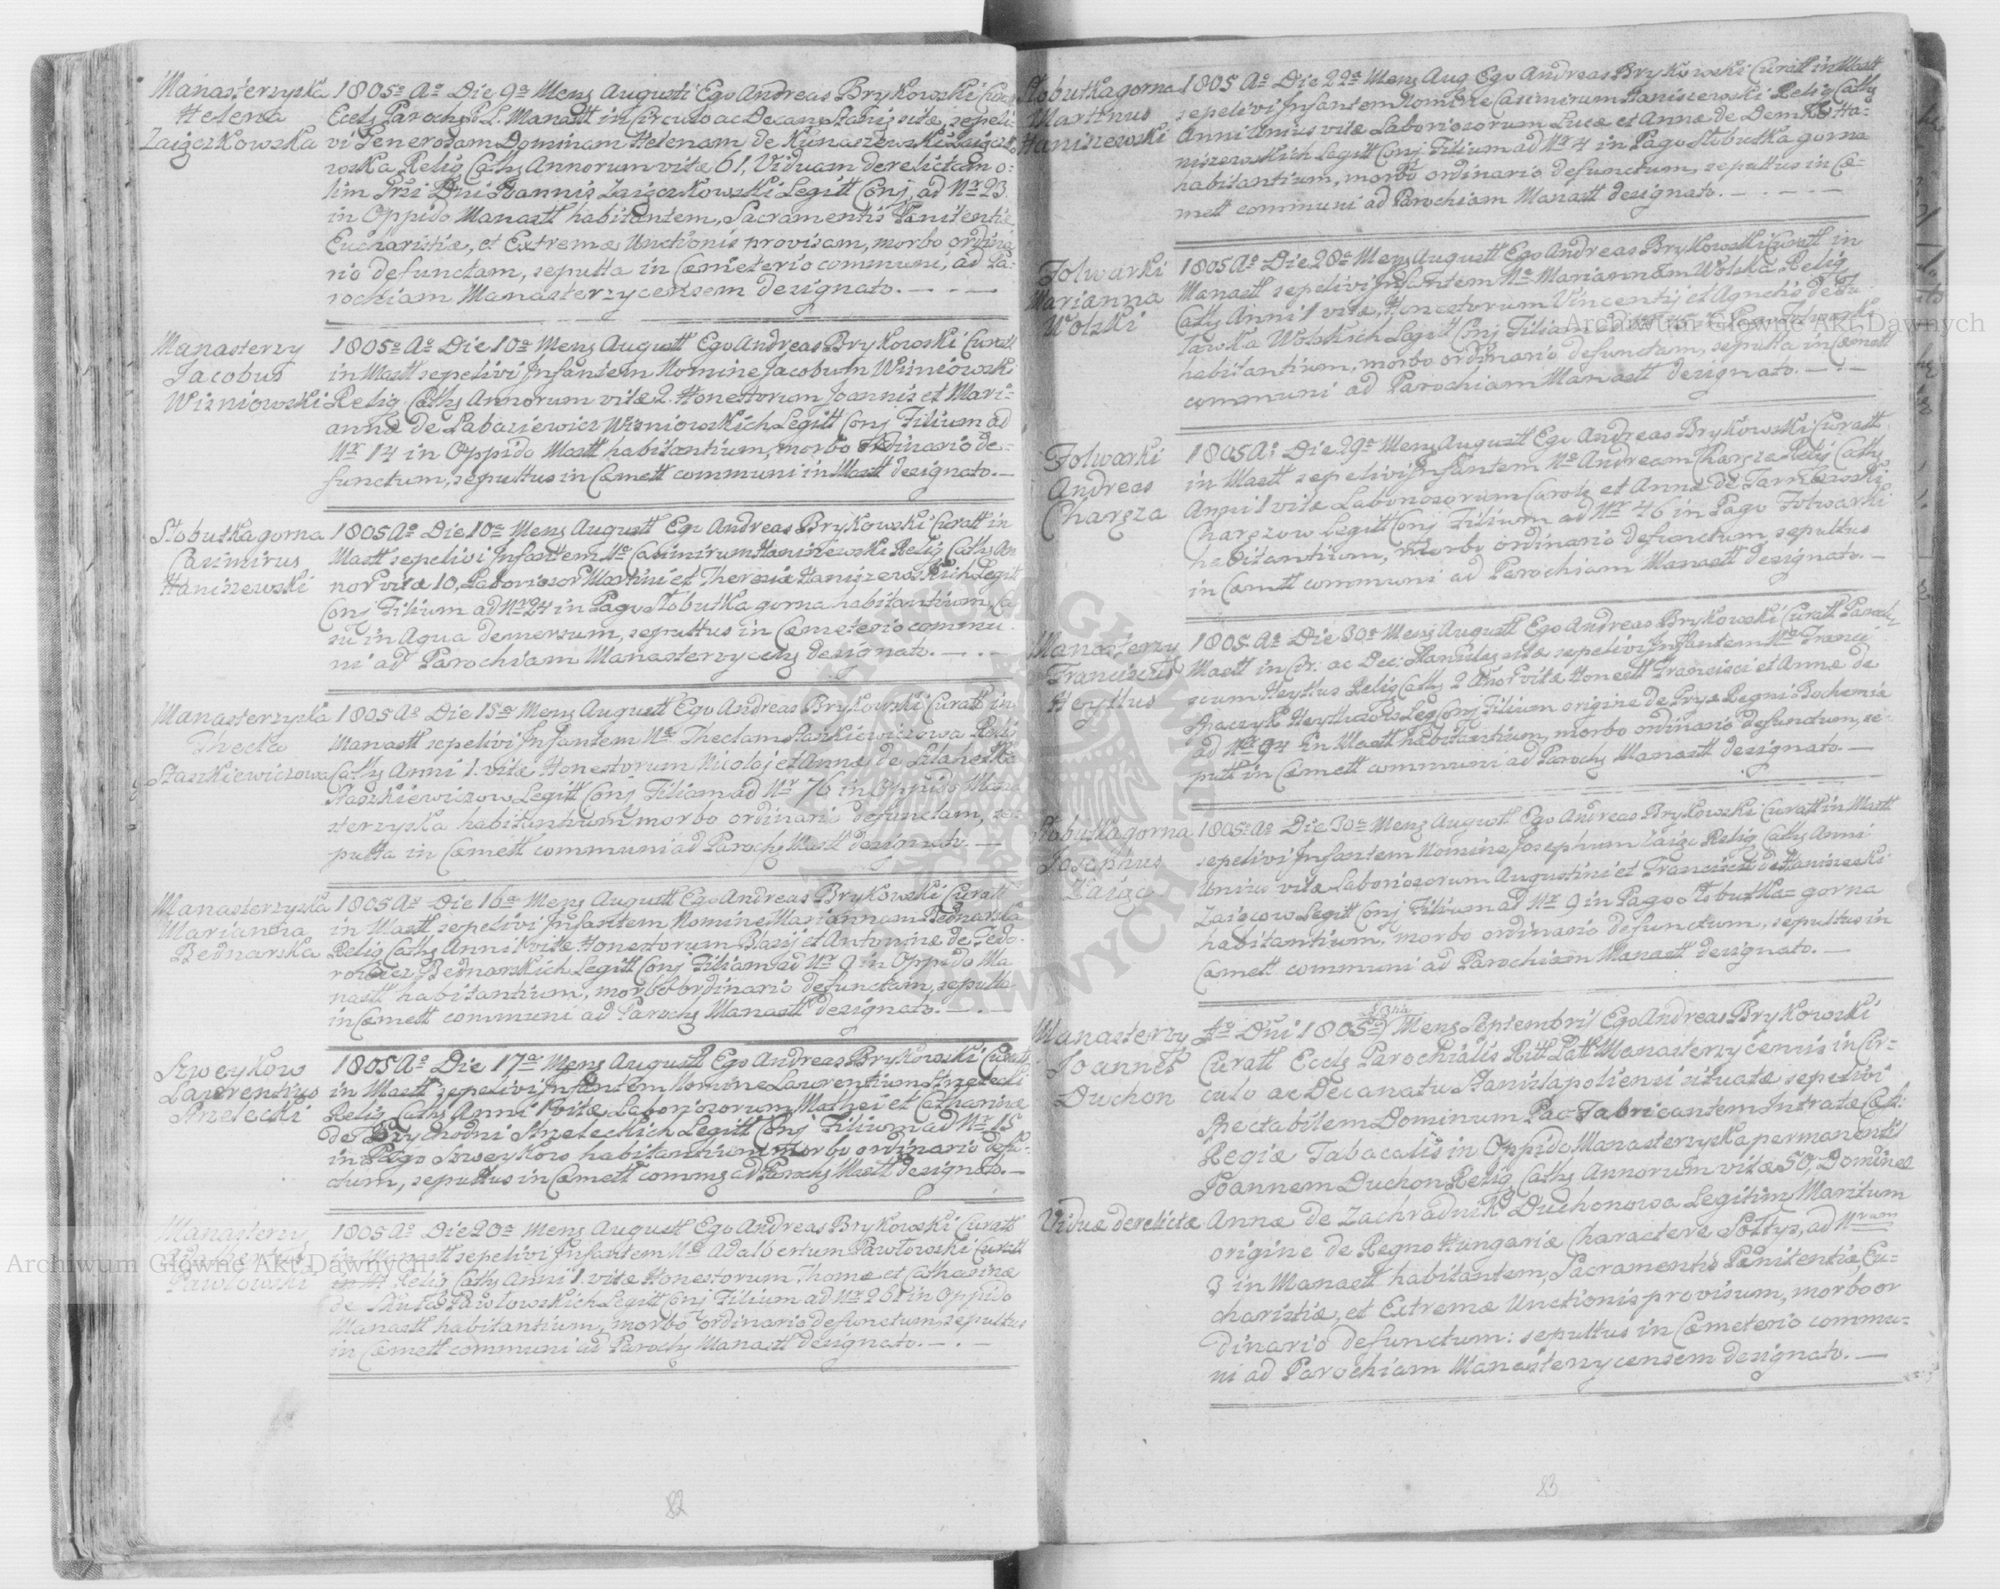 Manasterzyska
Helena
Zaiączkowska
1805º Aº Die 9ª Mens Augusti Ego Andreas Brykowski Curatt
Eccls Parochs R. L. Manastt in Circulo ac Decan Stanis sitæ, sepeli-
vi Generosam Dominam Helenam de Kunaszewski Zaiączko
wska Relig Caths Annorum vitæ 61, Viduam derelictam o-
lim Dni Joannis Zaiączkowski Legitt Conj, ad Nr 23
in Oppido Manastt habitantem, Sacramentis Pænitentiæ
Eucharistiæ, et Extremæ Unctionis provisam, morbo ordina
rio defunctam, sepulta in Cæmeterio communi, ad Pa-
rochiam Manasterzycensem designato. — · — · —
Manasterzy
Jacobus
Wiśniowski
1805º Aº Die 10ª Mens Augustt Ego Andreas Brykowski Curatt
in Mastt sepelivi Infantem Nomine Jacobum Wisniowski
Relig Caths Annorum vitæ 2 Honestorum Joannis et Mari-
annæ de Labaziewicz Wisniowskich Legitt Conj Filium ad
Nr 14 in Oppido Mastt habitantium, morbo ordinario de-
functum, sepultus in Cæmett communi in Mastt designato. —
Słobutka gorna
Casimirus
Haniszewski
1805 Aº Die 10ª Mens Augustt Ego Andreas Brykowski Curatt in
Mastt sepelivi Infantem Ne Casimirum Haniszewski Relig Caths An
nor vitæ 10, Laboriosor Martini et Theresiæ Haniszewskich Legitt
Conj Filium ad Nr 24 in Pago Słobutka gorna habitantium, ca
su in Aqua demersum, sepultus in Cæmeterio commu
ni ad Parochiam Manasterzycens designato. — · —
Manasterzyska
Thecla
Staszkiewiczowa
1805 Aº Die 15ª Mens Augustt Ego Andreas Brykowski Curatt in
Manastt sepelivi Infantem Ne Theclam Staszkiewiczowa Relig
Caths Anni 1. vitæ Honestorum Nicolaj et Annæ de
Staszkiewiczow Legitt Conj Filiam ad Nr 76 in Oppido Mana
sterzyska habitantium morbo ordinario defunctam, se-
pulta in Cæmett communi ad Parochs Mastt designato. —
Manasterzyska
Marianna
Bednarska
1805 Aº Die 16ª Mens Augustt Ego Andreas Brykowski Curatt
in Mastt sepelivi Infantem Nomine Mariannam Bednarska
Relig Caths Anni 1 vitæ Honestorum Blasij et Antoninæ de Fedo-
rowicz Bednarskich Legitt Conj Filiam ad Nr 9 in Oppido Ma
nastt habitantium, morbo ordinario defunctam, sepulta
in Cæmett communi ad Parochs Manastt designato. — · —
Szweykow
Laurentius
Strzelecki
1805 Aº Die 17ª Mens Augustt Ego Andreas Brykowski Curatt
in Mastt sepelivi Infantem Nomine Laurentium Strzelecki
Relig Caths Anni 1 vitæ Laboriosorum Mathei et Catharinæ
de Przychodni Strzeleckich Legitt Conj Filium ad Nr 15
in Pago Szweykow habitantium morbo ordinario defu-
nctum, sepultus in Cæmett comms ad Parochs Mastt designato. —
Manasterzy
Adalbertus
Pawłowski
1805 Aº Die 20ª Mens Augustt Ego Andreas Brykowski Curatt
in Manastt sepelivi Infantem Ne Adalbertum Pawłowski Curatt
Relig Caths Anni 1. vitæ Honestorum Thomæ et Catharinæ
de Pawłowskich Legitt Conj Filium ad Nr 261 in Oppido
Manastt habitantium, morbo ordinario defunctum, sepultus
in Cæmett communi ad Parochs Manastt designato. — · —
82
Słobutka gorna
Martinus
Haniszewski
1805 Aº Die 22ª Mens Aug Ego Andreas Brykowski Curatt in Mastt
sepelivi Infantem Nomine Casimirum Haniszewski Relig Caths
Anni Unius vitæ Laboriosorum Lucæ et Annæ de Demko Ha-
niszewskich Legitt Conj Filium ad Nr 4 in Pago Słobutka gorna
habitantium, morbo ordinario defunctum, sepultus in Cæ-
mett communi ad Parochiam Manastt designato. — · — · —
Folwarki
Marianna
Wolski
1805 Aº Die 28ª Mens Augustt Ego Andreas Brykowski Curatt in
Manastt sepelivi Infantem Ne Mariannam Wolska Relig
Caths Anni 1 vitæ, Honestorum Vincentij et Agnetis de
Wolskich Legitt Conj Filiam
habitantium, morbo ordinario defunctam, sepulta in Cæmett
communi ad Parochiam Manastt designato. — · —
Folwarki
Andreas
Charęza
1805 Aº Die 29ª Mens Augustt Ego Andreas Brykowski Curatt
in Mastt sepelivi Infantem Ne Andream Charęza Relig Caths
Anni 1 vitæ Laboriosorum Caroli et Annæ de Tarnkowski
Charęzow Legitt Conj Filium ad Nr 46 in Pago Folwarki
habitantium, morbo ordinario defunctum, sepultus
in Cæmett communi ad Parochiam Manastt designato. —
Manasterzy
Franciscus
Heyttus
1805 Aº Die 30ª Mens Augustt Ego Andreas Brykowski Curatt Paroch
Mastt in Cir: ac Dec: Stanislas sitæ sepelivi Infantem Ne Franci
scum Heyttus Relig Caths 2 Anor vitæ Honestt Francisci et Annæ de
Heyttusow Leg Conj Filium origine de Regni Bochemiæ
ad Nr 94 in Mastt habitantium, morbo ordinario defunctum, se-
pult in Cæmett communi ad Parochs Manastt designato. —
Słobutka gorna
Josephus
Zaiąc
1805 Aº Die 30ª Mens Augustt Ego Andreas Brykowski Curatt in Mastt
sepelivi Infantem Nomine Josephum Zaiąc Relig Caths Anni
Unius vitæ Laboriosorum Augustini et Franciscæ de Haniszewski
Zaiącow Legitt Conj Filium ad Nr 9 in Pago Słobutka- gorna
habitantium, morbo ordinario defunctum, sepultus in
Cæmett communi ad Parochiam Manastt designato. —
Manasterzy
Joannes
Duchon
Aº Dni 1805 Mens Septembris Ego Andreas Brykowski
Curatt Eccls Parochialis Rit Latt Manasterzycensis in Cir-
culo ac Decanatu Stanislapoliensi situatæ sepelivi
Spectabilem Dominum Pao Fabricantem Intratæ Cæs:
Regiæ Tabacalis in Oppido Manasterzyska permanentis
Joannem Duchon Relig Caths Annorum vitæ 50, Dominæ
Viduæ derelictæ
Annæ de Zachradnik Duchonowa Legitim Maritum
origine de Regno Hungariæ Charactere Soltys, ad Nrum
3 in Manastt habitantem, Sacramentis Pænitentiæ, Eu-
charistiæ, et Extremæ Unctionis provisum, morbo or
dinario defunctum: sepultus in Cæmeterio commu-
ni ad Parochiam Manasterzycensem designato. —
83
Archiwum Główne Akt Dawnych
Archiwum Główne Akt Dawnych